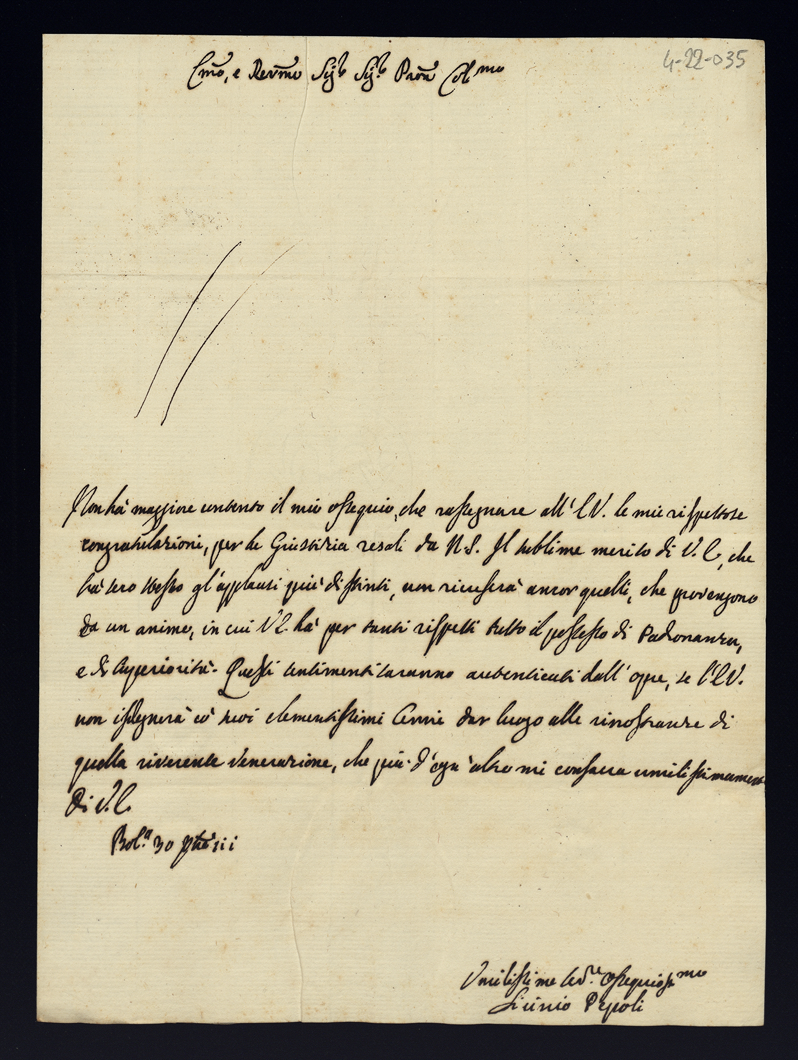 4-22-035
Em̃o, e Reum̃o Sig.r Sig.r Pa͠ron Col.mo
Non hà maggiore contento il mio ossequio, che rassegnare all'E.V. le mie rispettose
congratulazioni, per la Giustizia resali da N.S. Il sublime merito di V.E., che
hà gl'applausi più distinti, non ricuserà ancor quelli, che provengono
da un animo, in cui V.E. hà per tanti rispetti tutto il possesso di Padronanza,
e di Superiorità. Questi sentimenti saranno autenticati dall'opre, se l'E.V.
non isdegnerà co' suoi clementissimi Cenni dar luogo alle rimostranze di
quella riverente venerazione, che più d'ogn'altro mi consacra umilissimamente
Di V.E.
Bol.a 30
Umilissimo Ser.re Ossequiosiss.mo
Sicinio Pepoli